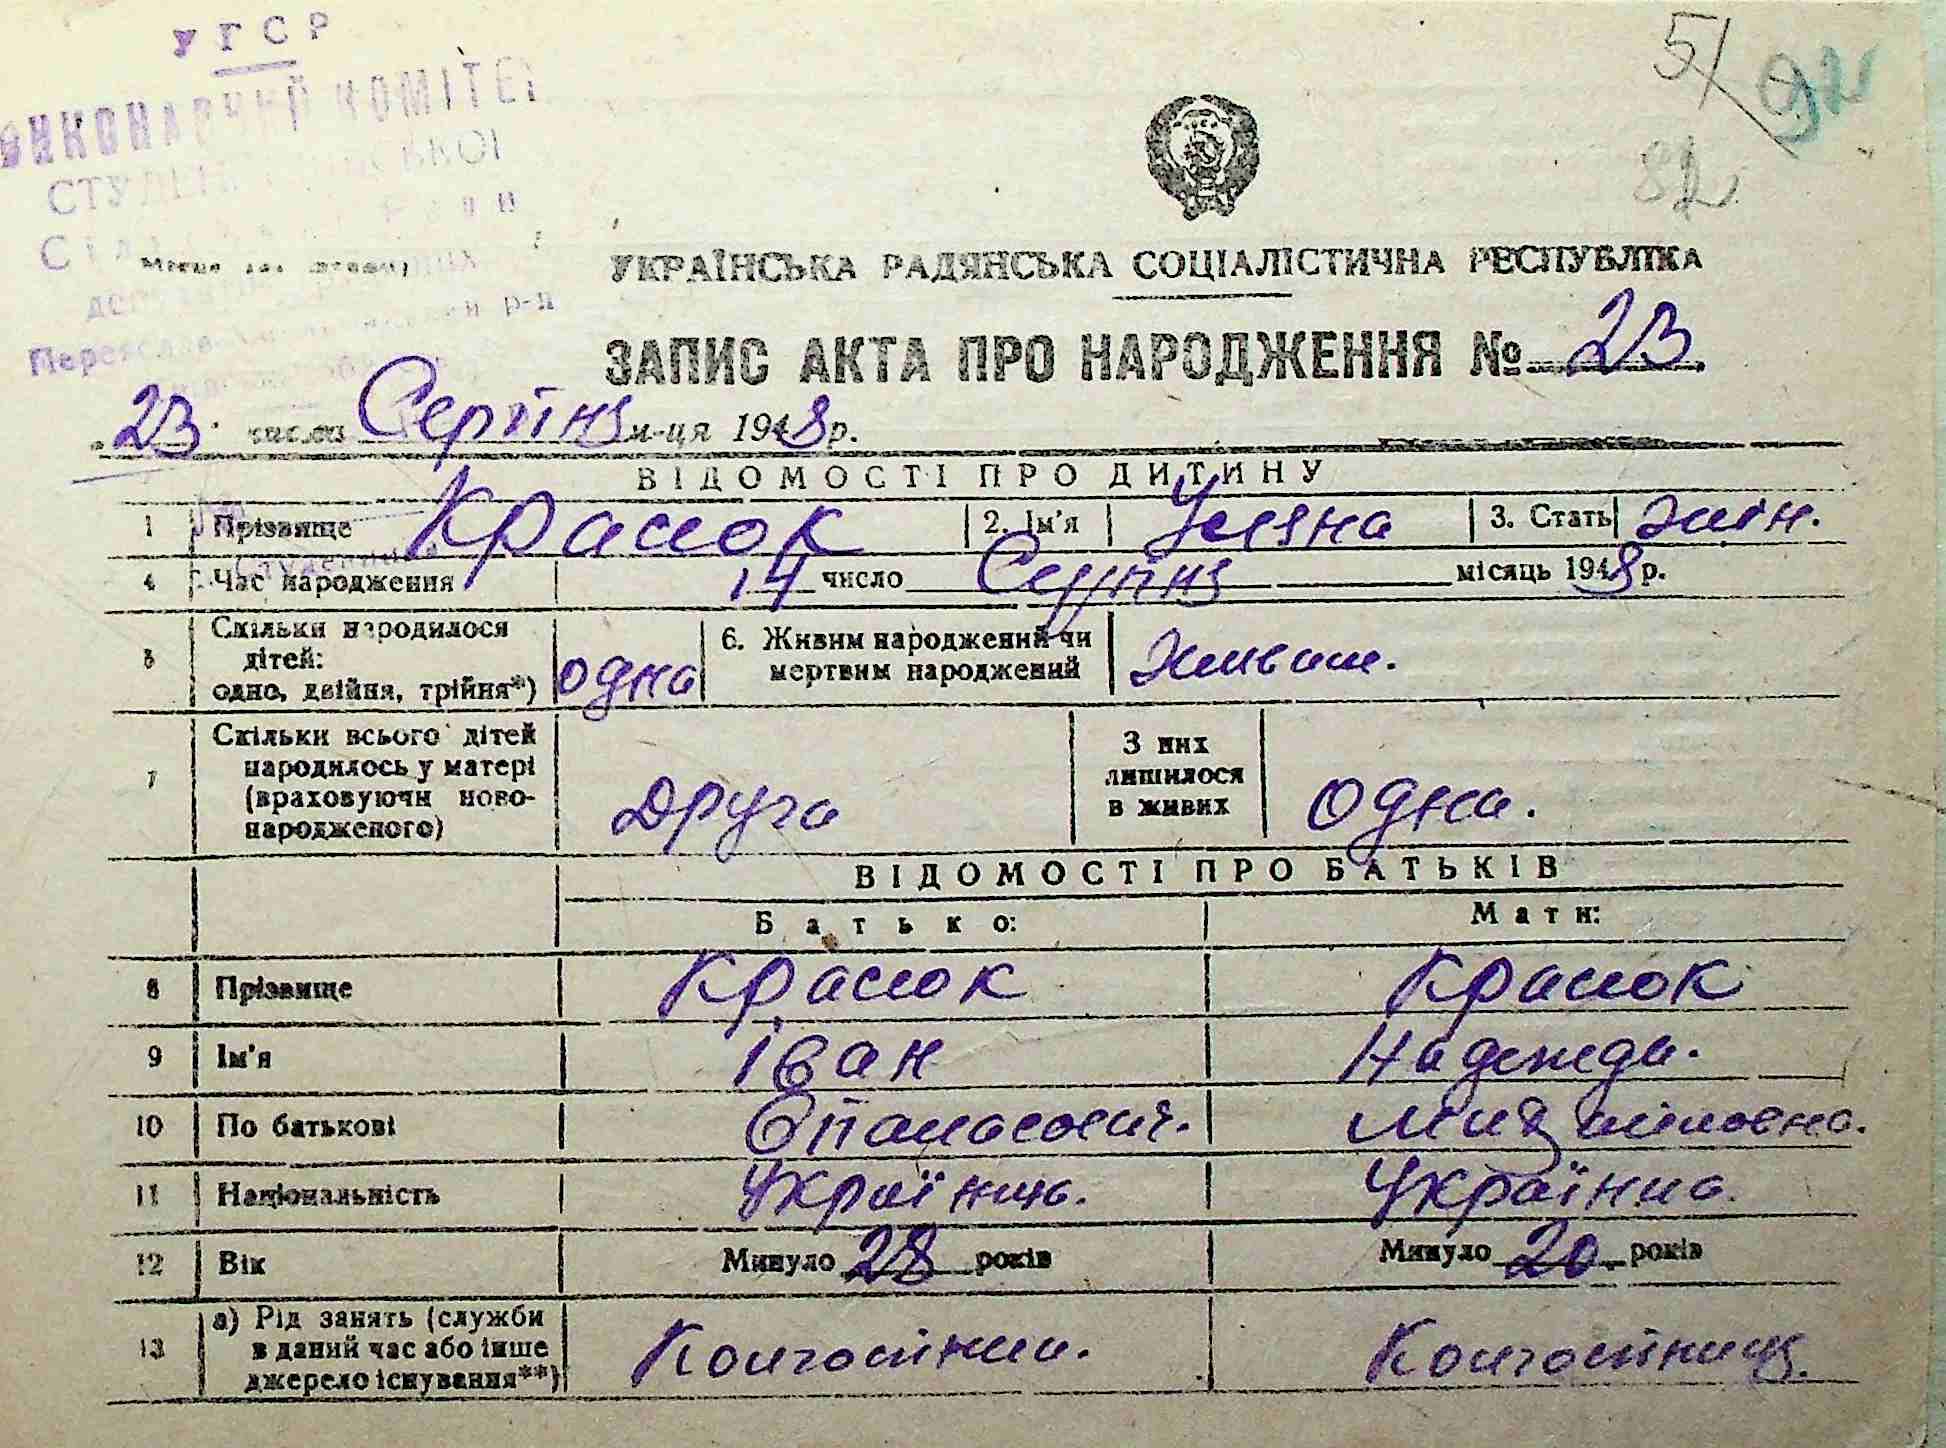 УРСР
ВИКОНАВЧИЙ КОМІТЕТ
р-н
51 92
82
УКРАЇНСЬКА РАДЯНСЬКА СОЦІАЛІСТИЧНА РЕСПУБЛІКА
ЗАПИС АКТА ПРО НАРОДЖЕННЯ № 23
„23" числа Серпня м-ця 1948 р.
ВІДОМОСТІ ПРО ДИТИНУ
1 Прізвище Красюк 2. Ім'я Уляна 3. Стать жін.
4 Час народження 14 число Серпня місяць 1948 р.
5 Скільки народилося дітей: одно, двійня, трійня*) одна 6. Живим народжений чи мертвим народжений живим.
7 Скільки всього дітей народилось у матері (враховуючи новонародженого) друга З них лишилося в живих одна.
ВІДОМОСТІ ПРО БАТЬКІВ
Батько: Мати:
8 Прізвище Красюк Красюк
9 Ім'я Іван Надежда.
10 По батькові Опанасович.
11 Національність Українць. Українка.
12 Вік Минуло 28 років Минуло 20 років
13 а) Рід занять (служби в даний час або інше джерело існування**) Колгоспник. Колгоспниця.